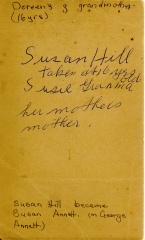 Doreen's g grandmother
(16 yrs)
Susan Hill
taken at 16 yrs old
Susie Grandma
her mothers
mother.
Susan Hill became
Susan Annett. (m George
Annett)